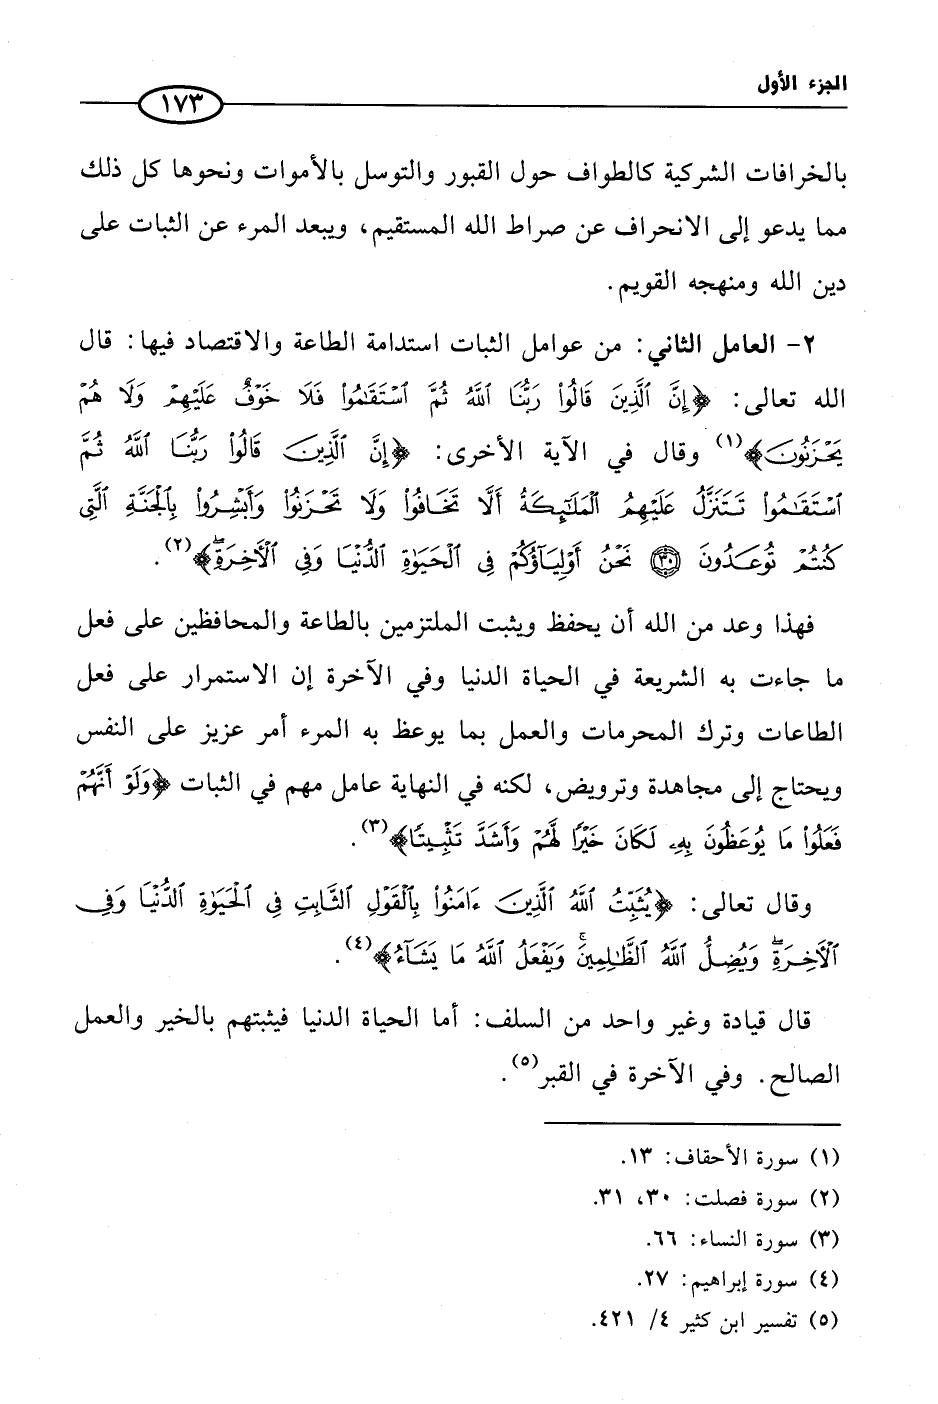 الجزء الأول
١٧٣
بالخرافات الشركية كالطواف حول القبور والتوسل بالأموات ونحوها كل ذلك
مما يدعو إلى الانحراف عن صراط الله المستقيم، ويبعد المرء عن الثبات على
دين الله ومنهجه القويم.
٢- العامل الثاني: من عوامل الثبات استدامة الطاعة والاقتصاد فيها: قال
الله تعالى: ﴿إِنَّ ٱلَّذِينَ قَالُوا۟ رَبُّنَا ٱللَّهُ ثُمَّ ٱسْتَقَٰمُوا۟ فَلَا خَوْفٌ عَلَيْهِمْ وَلَا هُمْ
يَحْزَنُونَ﴾(١) وقال في الآية الأخرى: ﴿إِنَّ ٱلَّذِينَ قَالُوا۟ رَبُّنَا ٱللَّهُ ثُمَّ
ٱسْتَقَٰمُوا۟ تَتَنَزَّلُ عَلَيْهِمُ ٱلْمَلَٰٓئِكَةُ أَلَّا تَخَافُوا۟ وَلَا تَحْزَنُوا۟ وَأَبْشِرُوا۟ بِٱلْجَنَّةِ ٱلَّتِى
كُنتُمْ تُوعَدُونَ ۝٣٠ نَحْنُ أَوْلِيَآؤُكُمْ فِى ٱلْحَيَوٰةِ ٱلدُّنْيَا وَفِى ٱلْءَاخِرَةِ ۖ﴾(٢).
فهذا وعد من الله أن يحفظ ويثبت الملتزمين بالطاعة والمحافظين على فعل
ما جاءت به الشريعة في الحياة الدنيا وفي الآخرة إن الاستمرار على فعل
الطاعات وترك المحرمات والعمل بما يوعظ به المرء أمر عزيز على النفس
ويحتاج إلى مجاهدة وترويض، لكنه في النهاية عامل مهم في الثبات ﴿وَلَوْ أَنَّهُمْ
فَعَلُوا۟ مَا يُوعَظُونَ بِهِۦ لَكَانَ خَيْرًا لَّهُمْ وَأَشَدَّ تَثْبِيتًا﴾(٣).
وقال تعالى: ﴿يُثَبِّتُ ٱللَّهُ ٱلَّذِينَ ءَامَنُوا۟ بِٱلْقَوْلِ ٱلثَّابِتِ فِى ٱلْحَيَوٰةِ ٱلدُّنْيَا وَفِى
ٱلْءَاخِرَةِ ۖ وَيُضِلُّ ٱللَّهُ ٱلظَّٰلِمِينَ ۚ وَيَفْعَلُ ٱللَّهُ مَا يَشَآءُ﴾(٤).
قال قيادة وغير واحد من السلف: أما الحياة الدنيا فيثبتهم بالخير والعمل
الصالح. وفي الآخرة في القبر(٥).
(١) سورة الأحقاف: ١٣.
(٢) سورة فصلت: ٣٠، ٣١.
(٣) سورة النساء: ٦٦.
(٤) سورة إبراهيم: ٢٧.
(٥) تفسير ابن كثير ٤/ ٤٢١.